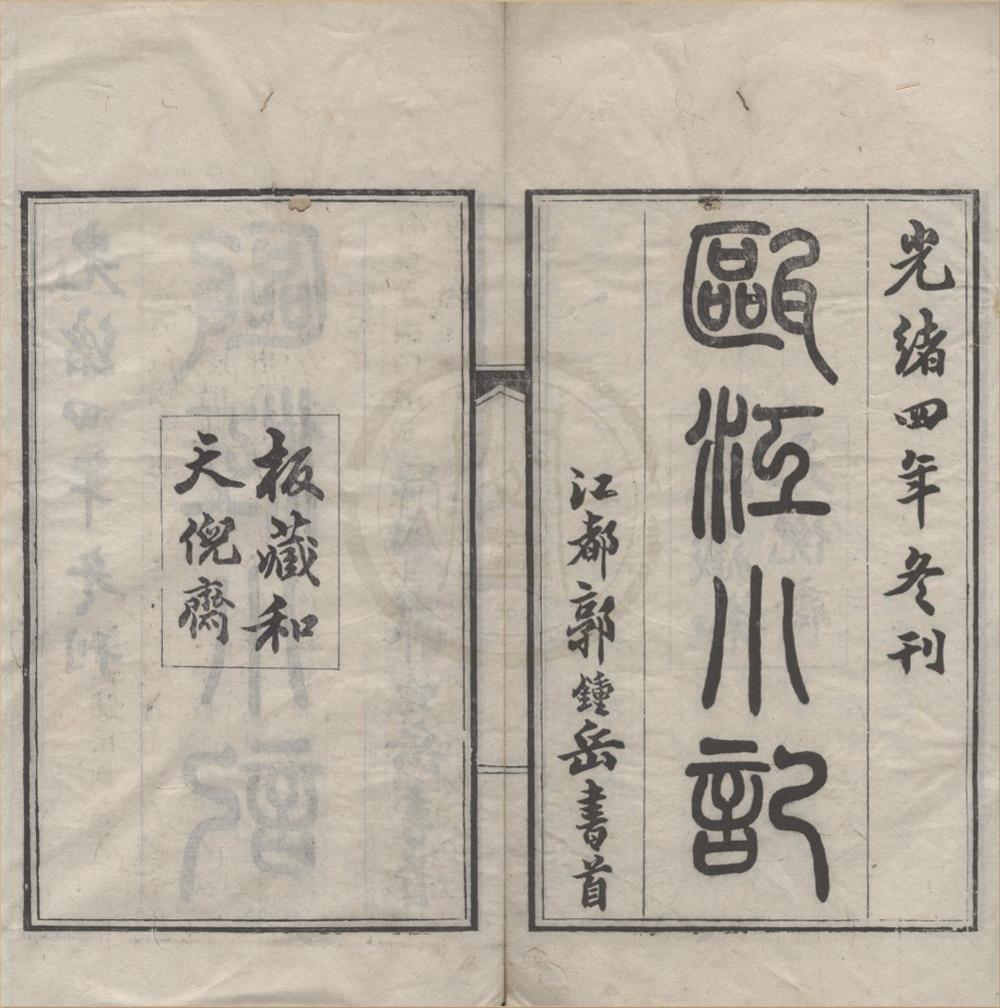 光緒四年冬刊
甌江小記
江都郭鍾岳書首
板藏和
天倪齋